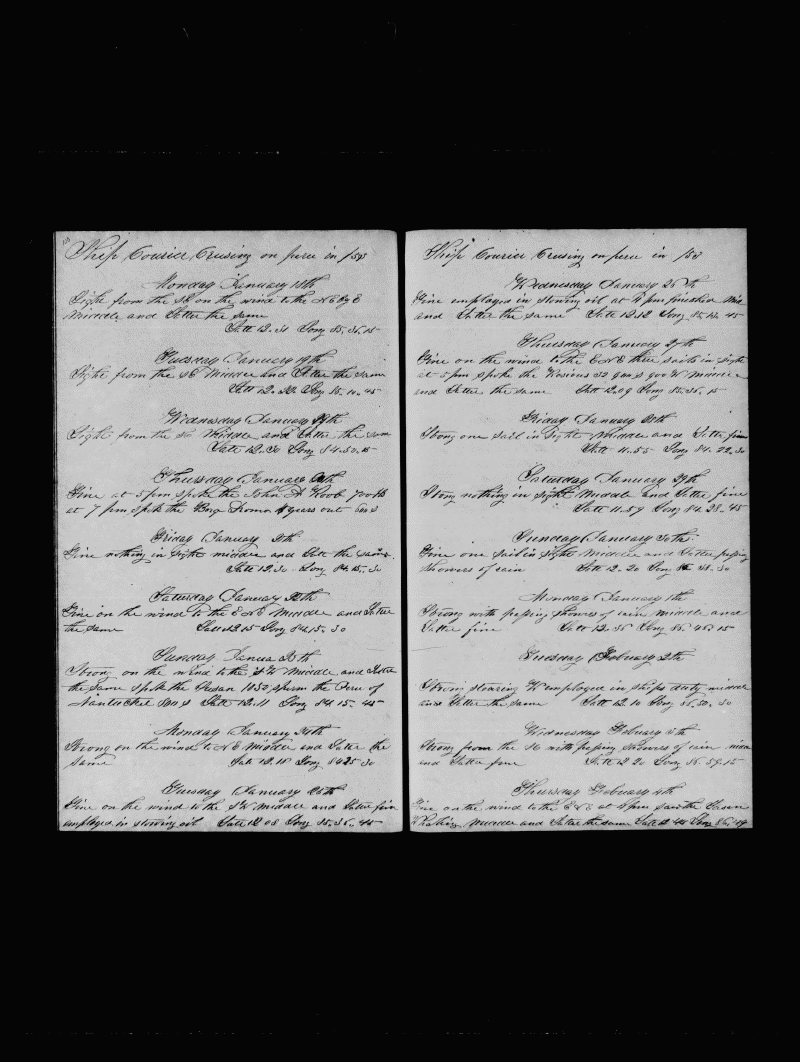 Ship Courier Crusing on peru in 185
Monday January 18th
Light from the SE on the wind to the NE by E
Middle and Latter the same
Latt 12.31 Long 85.36.15
Tuesday January 19th
Light from the SE Middle and Latter the same
Latt 12.22 Long 85.10.45
Wednesday January 19th
Light from the SE Middle and Latter the same
Latt 12.30 Long 84.50.15
Thursday January th
Fine at 5 pm spoke the John A 700 bb
at 7 pm spok the Roma years out
Friday January th
Fine nothing in sight middle and Latt the same
Latt 12.30 Long 84.15.30
Saturday January 22th
Fine on the wind to the E N E Middle and Latter
the same Latt 12 15 Long 84.15.30
Sunday Janua th
Strong on the wind to the S W Middle and Latter
the Same spok the Susan 1050 sperm the Peru of
Nantucket Latt 12.11 Long 84 15.45
Monday January 24th
Strong on the wind to N E Middle and Latter the
same Latt 12.18 Long 84 25 30
Tuesday January 25th
Fine on the wind to the S W Middle and Latter fin
employed in stowing oil Latt 12 08 Long 85.36.45
Ship Courier Crusing on peru in 185
Wednesday January 26th
Fine employed in stowing oil at 4 pm finished Mid
and Latter the same Latt 12.12 Long 85.12.45
Thursday January 27th
Fine on the wind to the E N E three sails in sight
at 5 pm spoke the 32 Middle
and Latter the same Latt 12.09 Long 85.35.15
Friday January th
Strong one sail in sight Middle and Latter fine
Latt 11.55 Long 84.22.30
Saturday January 29th
Strong nothing in sight Middle and Latter fine
Latt 11.59 Long 84.28.45
Sunday January 30th
Fine one sail in sight Middle and Latter passing
showers of rain Latt 12.20 Long 38.30
Monday January 1th
Strong with passing showers of rain middle and
Latter fine Latt 12.36 Long 86.45.15
Tuesday February 2th
Strong steering W employed in ships duty middle
and Latter the same Latt 12.10 Long 86.50.30
Wednesday February 3th
Strong from the SE with passing showers of rain
and Latter fine Latt 12 20 Long 86.59.15
Thursday February 4th
Fine on the wind to the E N E at 4 pm saw the
Whaling Middle and Latter the same Latt Long